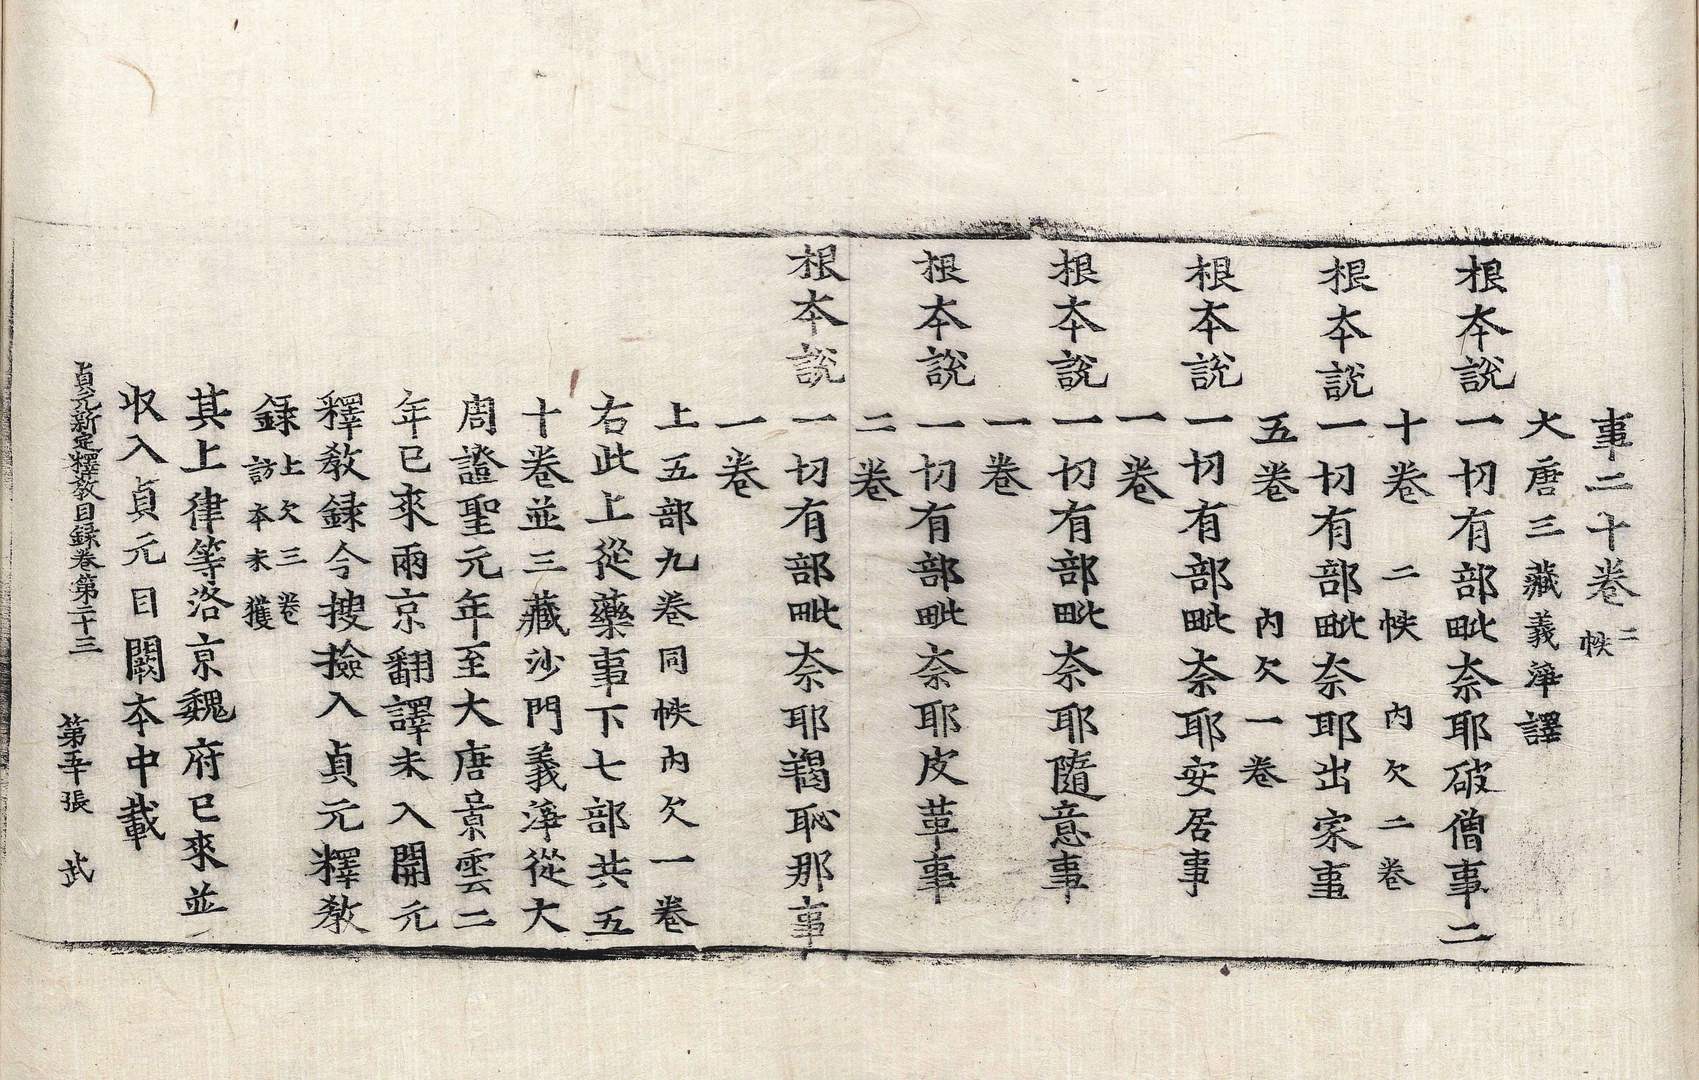 事二十卷二帙
大唐三藏義淨譯
根本說一切有部毗奈耶破僧事二
十卷二帙內欠二卷
根本說一切有部毗奈耶出家事
五卷內欠一卷
根本說一切有部毗奈耶安居事
一卷
根本說一切有部毗奈耶隨意事
一卷
根本說一切有部毗奈耶皮革事
二卷
根本說一切有部毗奈耶羯恥那事
一卷
上五部九卷同帙內欠一卷
右此上從藥事下七部共五
十卷並三藏沙門義淨從大
周證聖元年至大唐景雲二
年已來兩京翻譯未入開元
釋教錄今搜撿入貞元釋教
錄上欠三卷訪本未獲
其上律等洛京魏府已來並
収入貞元目闕本中載
貞元新定釋教目錄卷第二十三 第五十張 武